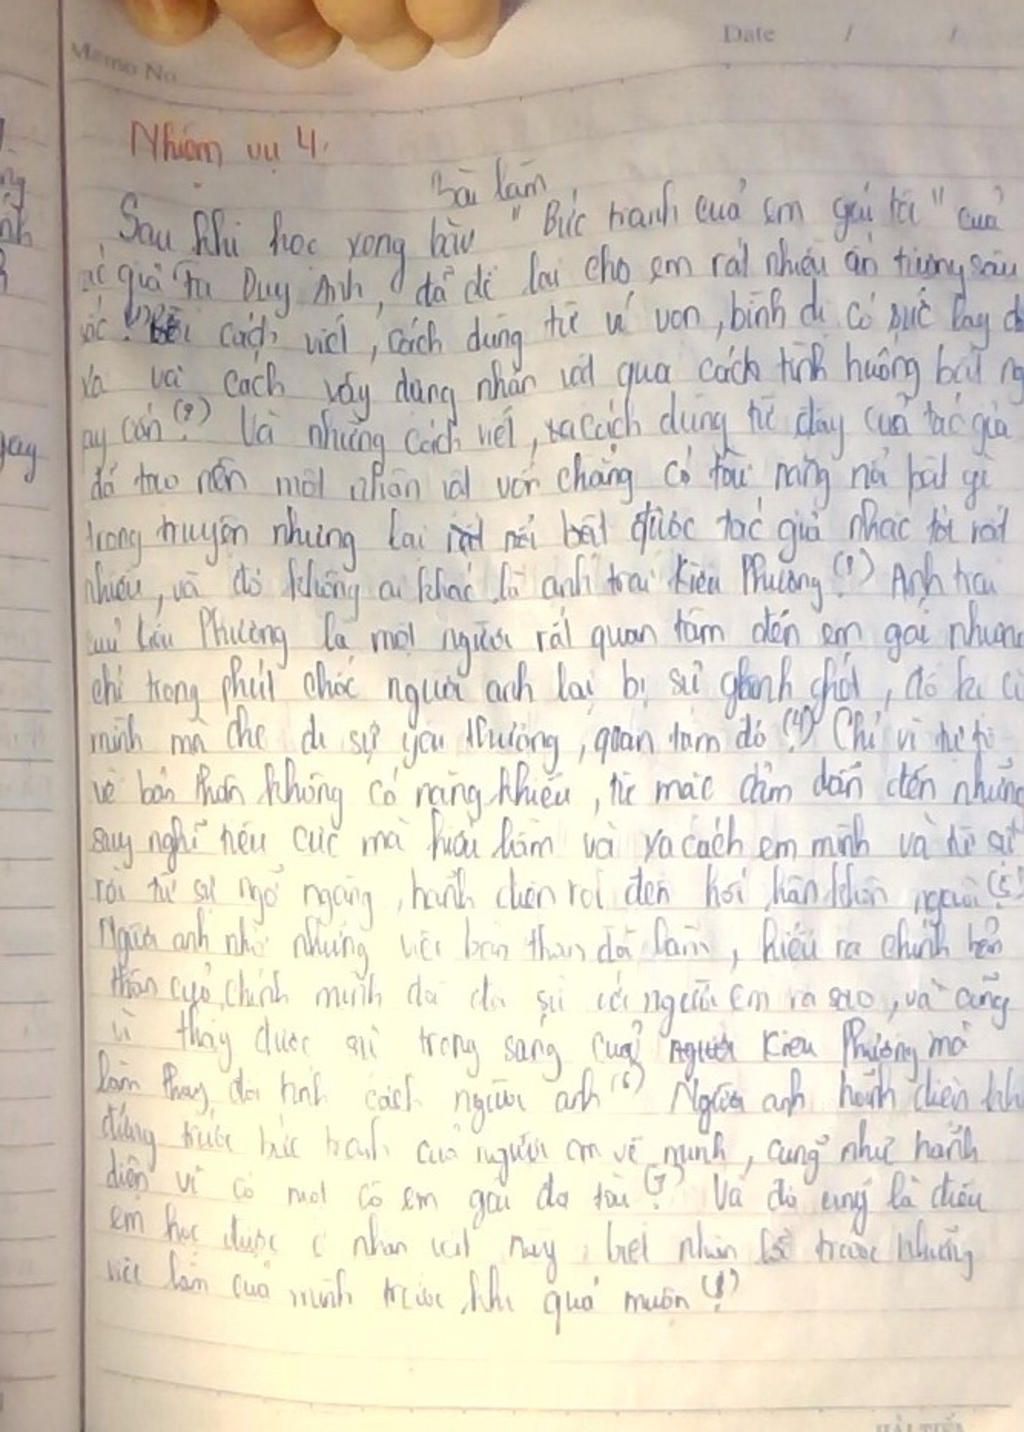 Date / /
Memo No
Nhiệm vụ 4.
Bài làm
Sau khi học xong bài "Bức tranh của em gái tôi" của
ác giả Tạ Duy Anh, đã để lại cho em rất nhiều ấn tượng sâu
sắc.(1) Bởi cách viết, cách dùng từ ví von, bình dị có sức lay đ
và với cách xây dựng nhân vật qua cách tình huống bất ng
ay cấn.(2) Và những cách viết, cách dùng từ đấy của tác giả
đã tạo nên một nhân vật vốn chẳng có tài năng nổi bật gì
trong truyện nhưng lại nổi bật được tác giả nhắc tới rất
nhiều, và đó không ai khác là anh trai Kiều Phương.(3) Anh trai
Kiều Phương là một người rất quan tâm đến em gái nhưng
chỉ trong phút chốc người anh lại bị sự ganh ghét, đố kị củ
mình mà che đi sự yêu thương, quan tâm đó.(4) Chỉ vì tự ti
về bản thân không có năng khiếu, từ mặc cảm dẫn đến những
suy nghĩ tiêu cực mà hiểu lầm và xa cách em mình và từ sự
rồi từ sự ngỡ ngàng, hãnh diện rồi đến hối hận khôn nguôi.(5)
Người anh nhờ những việc bản thân đã làm, hiểu ra chính bản
thân của chính mình đã đối sử với người em ra sao, và cũng
vì thấy được sự trong sáng của Kiều Phương mà
làm thay đổi tính cách người anh.(6) Người anh hãnh diện khi
đứng trước bức tranh của người em vẽ mình, cũng như hãnh
diện vì có một cô em gái đa tài.(7) Và đó cũng là điều
em học được ở nhân vật này, biết nhìn lại trước những
việc làm của mình trước khi quá muộn.(8)
HẢI TIẾN